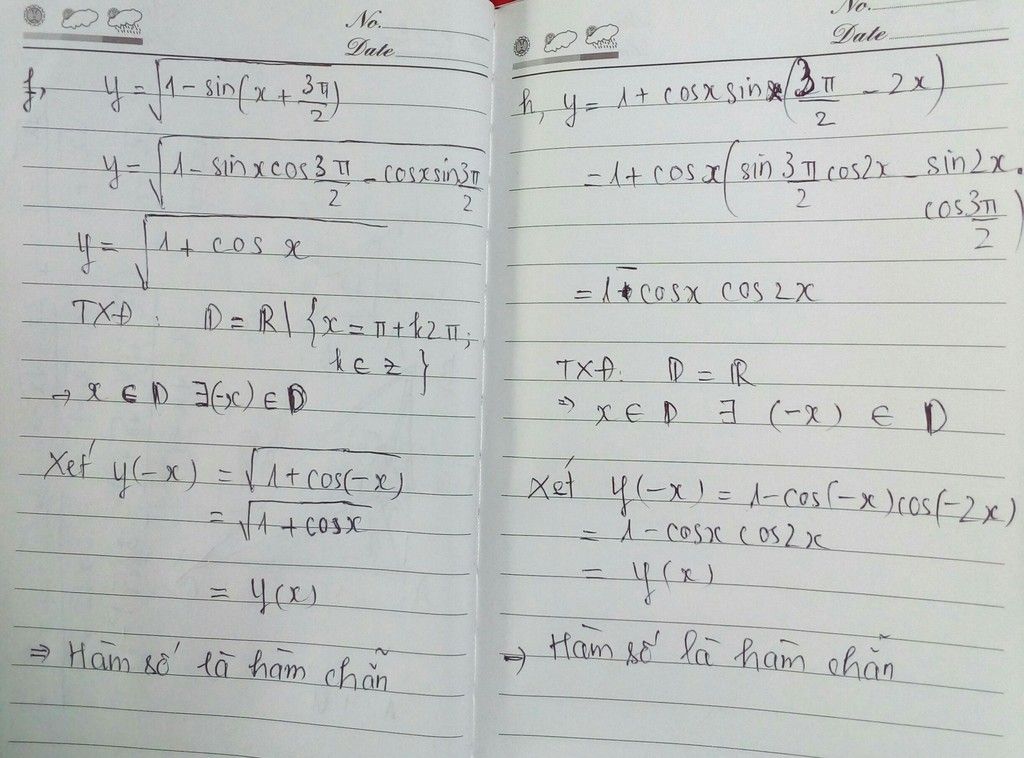 No.
Date
f, y = √(1 - sin(x + 3π/2))
y = √(1 - sinxcos3π/2 - cosxsin3π/2)
y = √(1 + cos x)
TXĐ: D = R \ {x = π + k2π;
k ∈ z}
→ x ∈ D ∃(-x) ∈ D
Xét y(-x) = √(1 + cos(-x))
= √(1 + cosx)
= y(x)
⇒ Hàm số là hàm chẵn
No.
Date
h, y = 1 + cosx sin(3π/2 - 2x)
= 1 + cosx(sin3π/2 cos2x - sin2x.
cos3π/2)
= 1 - cosx cos2x
TXĐ: D = R
⇒ x ∈ D ∃ (-x) ∈ D
Xét y(-x) = 1 - cos(-x)cos(-2x)
= 1 - cosx cos2x
= y(x)
⇒ Hàm số là hàm chẵn